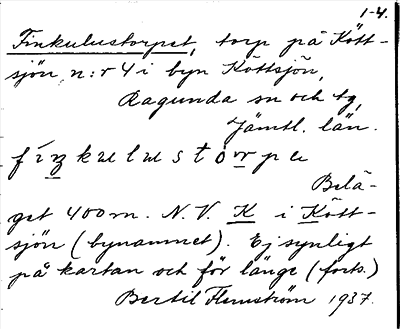 1-4.
Finkulustorpet, torp på Kött-
sjön n:r 4 i byn Köttsjön,
Ragunda sn och tg,
Jämtl. län.
fíŋkulustòrpe
Belä-
get 400 m. N.V. K i Kött-
sjön (bynamnet). Ej synligt
på kartan och för länge (forts.)
Bertil Flemström 1937.